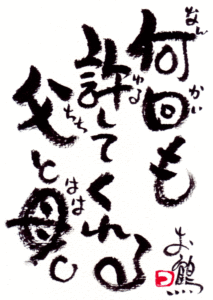 何回も
許してくれる
父と母。
なん
かい
ゆる
ちち
はは
お鶴